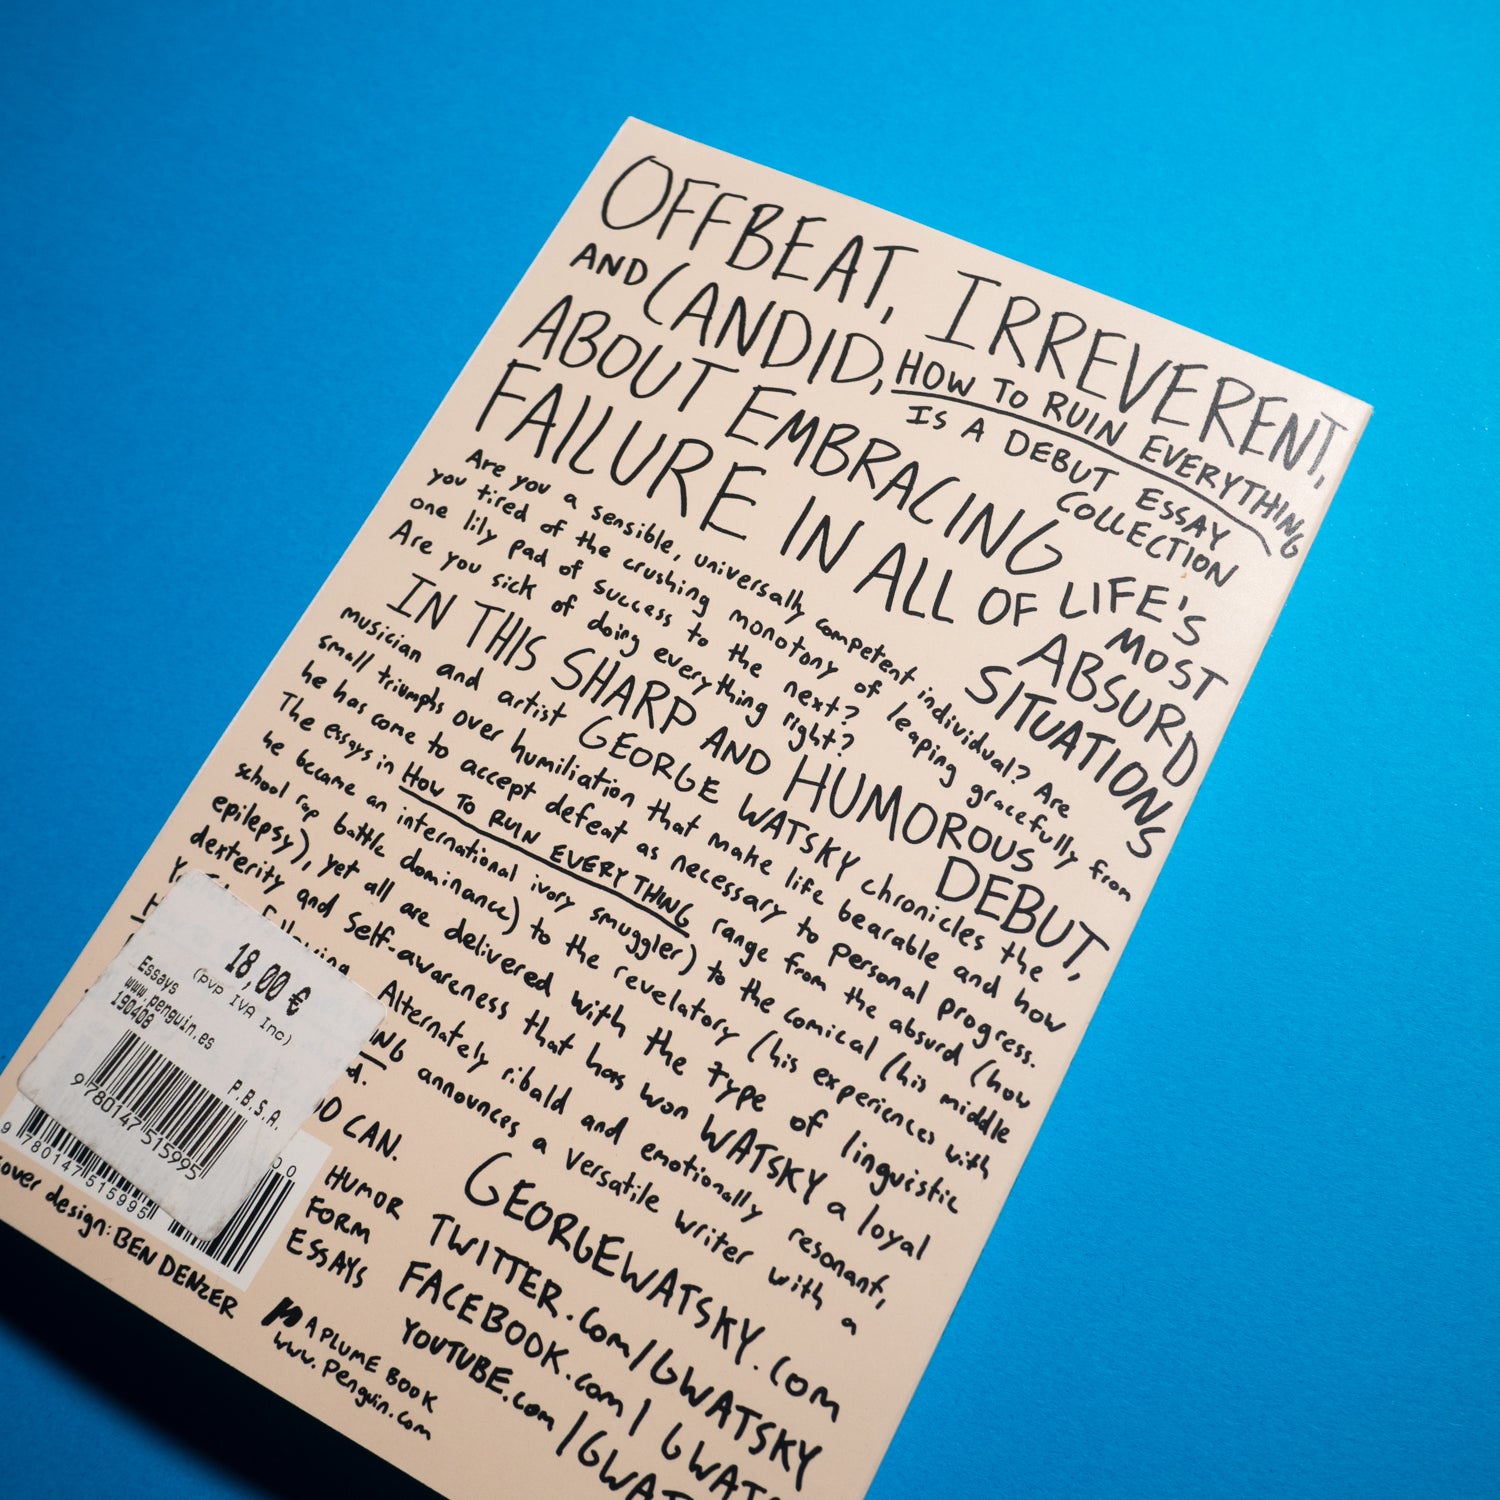 OFFBEAT, IRREVERENT,
AND CANDID, HOW TO RUIN EVERYTHING
IS A DEBUT ESSAY
COLLECTION
ABOUT EMBRACING LIFE'S MOST
FAILURE IN ALL OF ABSURD
SITUATIONS
Are you a sensible, universally competent individual? Are
you tired of the crushing monotony of leaping gracefully from
one lily pad of success to the next?
Are you sick of doing everything right?
IN THIS SHARP AND HUMOROUS DEBUT,
musician and artist GEORGE WATSKY chronicles the
small triumphs over humiliation that make life bearable and how
he has come to accept defeat as necessary to personal progress.
The essays in HOW TO RUIN EVERYTHING range from the absurd (how
he became an international ivory smuggler) to the comical (his middle
school rap battle dominance) to the revelatory (his experiences with
epilepsy), yet all are delivered with the type of linguistic
dexterity and self-awareness that has won WATSKY a loyal
following Alternately ribald and emotionally resonant,
ING announces a versatile writer with a
d.
CAN.
18,00 €
Essays (PVP IVA Inc)
www.penguin.es
190408
P.B.S.A.
9 780147 515995
9 780147 515995
cover design: BEN DENZER
HUMOR
FORM
ESSAYS
A PLUME BOOK
www.penguin.com
GEORGEWATSKY.COM
TWITTER.com/GWATSKY
FACEBOOK.com/GWATS
YOUTUBE.com/GWAT